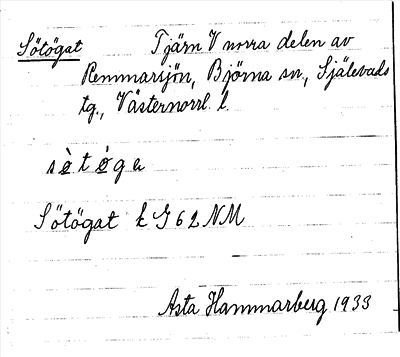 Sötögat Tjärn V norra delen av
Remmarsjön, Björna sn, Själevads
tg., Västernorrl. l.
sö̀tö̀ga
Sötögat k G 62 NM
Asta Hammarberg 1933